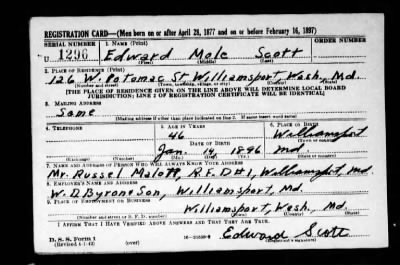 REGISTRATION CARD—(Men born on or after April 28, 1877 and on or before February 16, 1897)
SERIAL NUMBER 1. NAME (Print) ORDER NUMBER
U 1296 Edward Mole Scott
(First) (Middle) (Last)
2. PLACE OF RESIDENCE (Print)
126 W. Potomac St Williamsport, Wash, Md.
(Number and street) (Town, township, village, or city) (County) (State)
[THE PLACE OF RESIDENCE GIVEN ON THE LINE ABOVE WILL DETERMINE LOCAL BOARD
JURISDICTION; LINE 2 OF REGISTRATION CERTIFICATE WILL BE IDENTICAL]
3. MAILING ADDRESS
Same
[Mailing address if other than place indicated on line 2. If same insert word same]
4. TELEPHONE 5. AGE IN YEARS 6. PLACE OF BIRTH
46 Williamsport
DATE OF BIRTH (Town or county)
Jan. 14, 1896 Md.
(Exchange) (Number) (Mo.) (Day) (Yr.) (State or country)
7. NAME AND ADDRESS OF PERSON WHO WILL ALWAYS KNOW YOUR ADDRESS
Mr. Russel Malott, R.F.D#1, Williamsport, Md.
8. EMPLOYER'S NAME AND ADDRESS
W. D Byron & Son, Williamsport, Md.
9. PLACE OF EMPLOYMENT OR BUSINESS
Williamsport, Wash., Md.
(Number and street or R. F. D. number) (Town) (County) (State)
I AFFIRM THAT I HAVE VERIFIED ABOVE ANSWERS AND THAT THEY ARE TRUE.
D. S. S. Form 1
(Revised 4-1-42) (over) Edward Scott
(Registrant's signature)